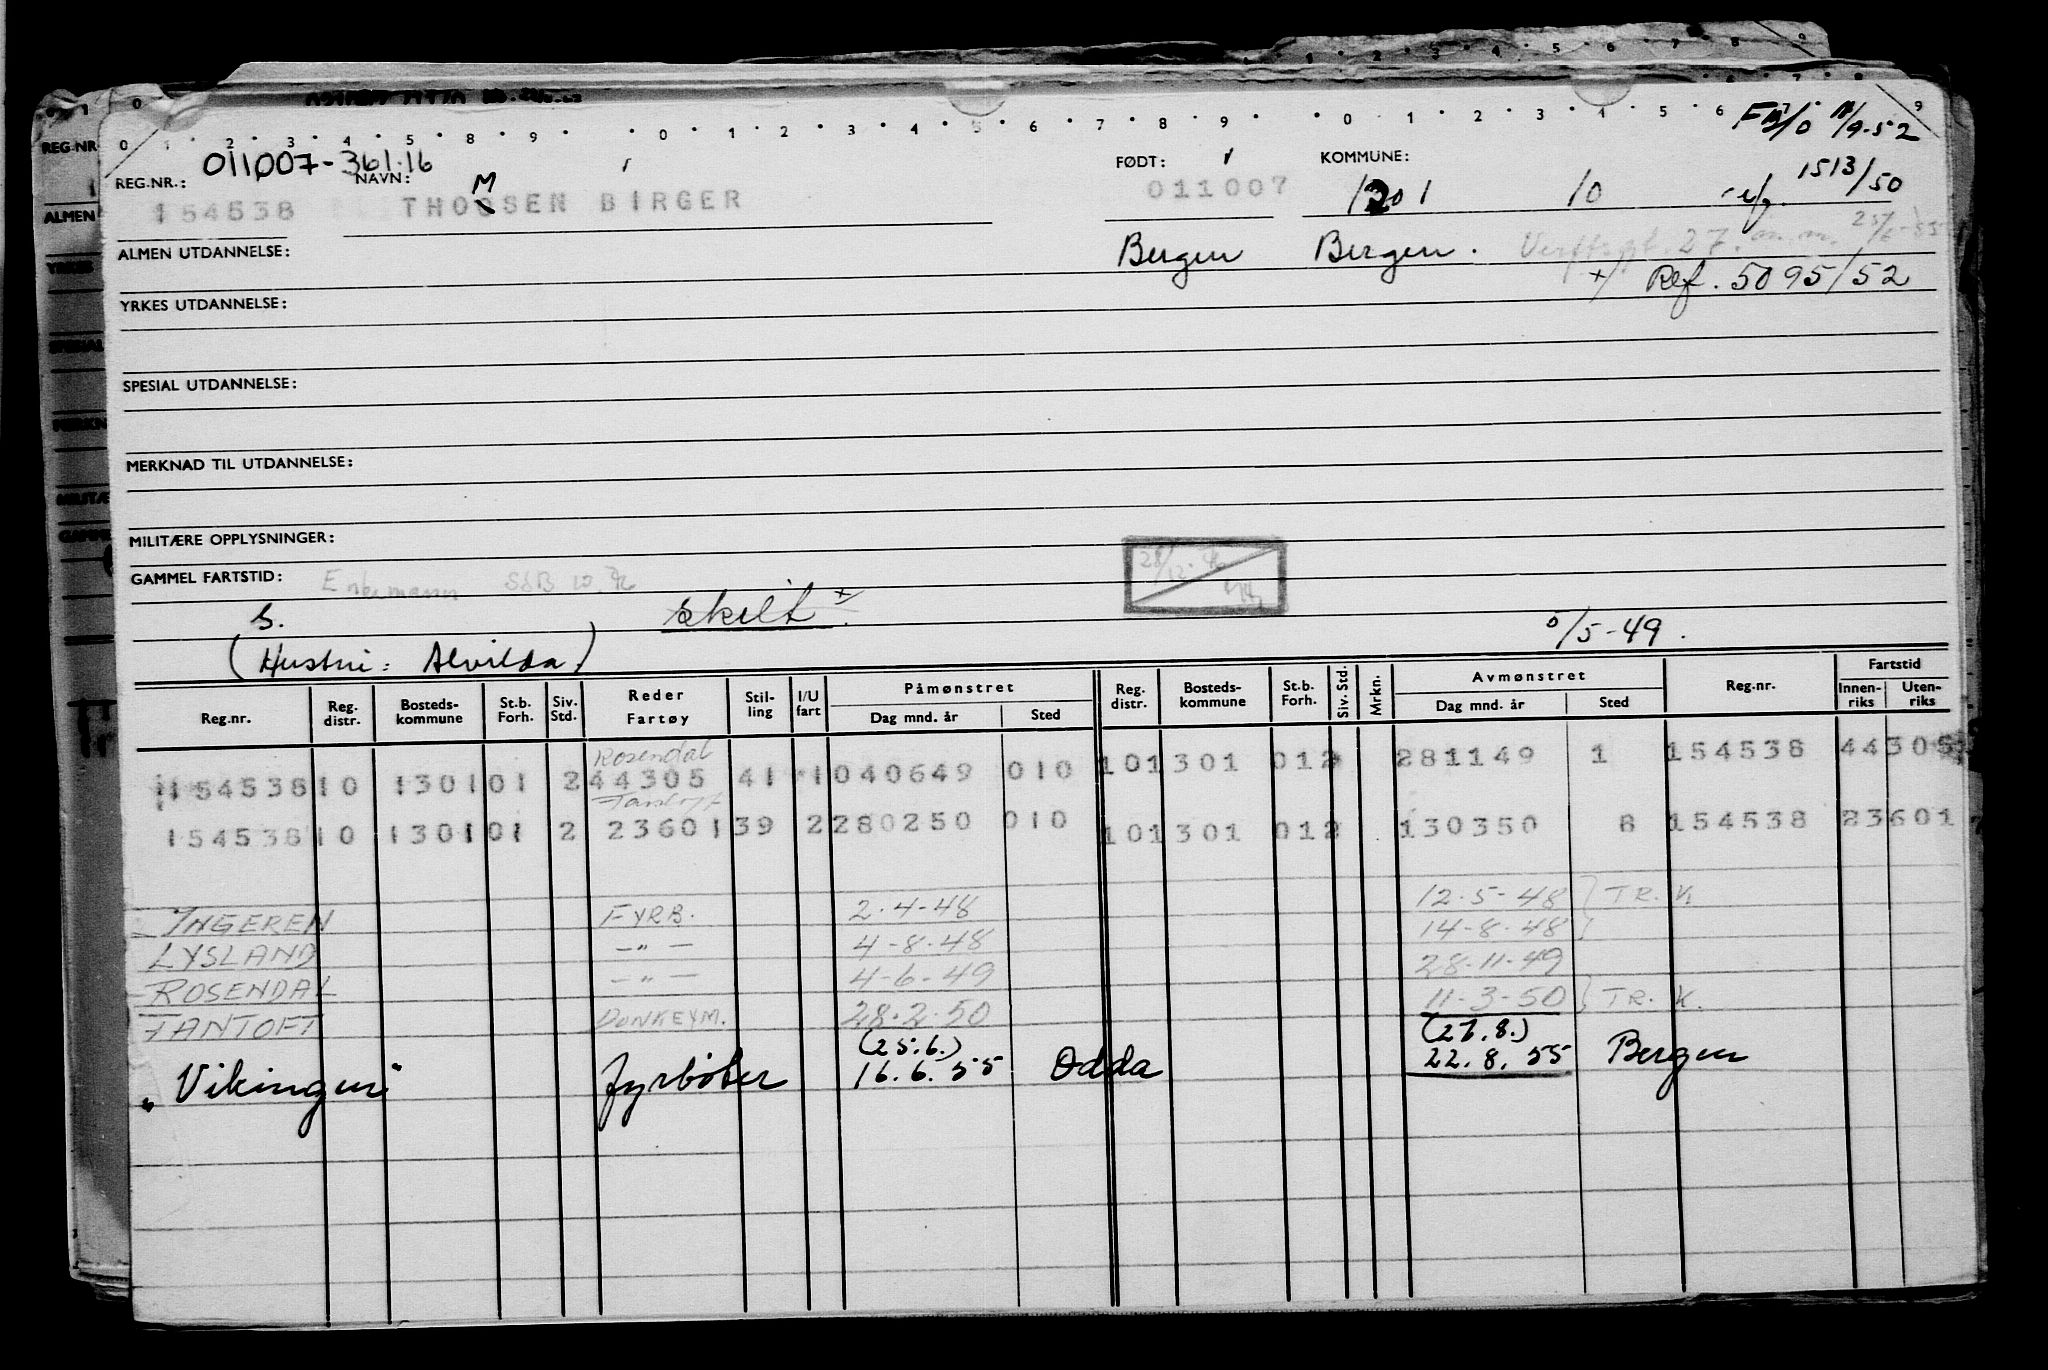 0 1 2 3 4 5 8 9 0 1 2 3 4 5 6 7 8 9 0 1 2 3 4 5 6 9
11/9-52
011007-361.16
REG.NR.: NAVN: FØDT: KOMMUNE:
M
154538 THOOSEN BIRGER 011007 1201 10 ref. 1513/50
ALMEN UTDANNELSE: Bergen Bergen. Verftsgt. 27.
+/ Ref. 5095/52
YRKES UTDANNELSE:
SPESIAL UTDANNELSE:
MERKNAD TIL UTDANNELSE:
MILITÆRE OPPLYSNINGER:
GAMMEL FARTSTID: Enkemann
S. skilt +
5/5-49.
(Hustru: Alvilda)
Reg.nr. Reg. distr. Bosteds-kommune St.b. Forh. Siv. Std. Reder Fartøy Stil-ling I/U fart Påmønstret Dag mnd. år Sted Reg. distr. Bosteds-kommune St.b. Forh. Siv. Std. Mrkn. Avmønstret Dag mnd. år Sted Reg.nr. Fartstid Innen-riks Uten-riks
Rosendal
154538 10 1301 01 2 44305 41 1 040649 010 10 1301 01 2 281149 1 154538 44305
Tantoft
154538 10 1301 01 2 23601 39 2 280250 010 10 1301 01 2 130350 8 154538 23601
INGEREN FYRB. 2.4-48 12.5-48 TR. K
LYSLAND -"- 4-8-48 14-8-48
ROSENDAL -"- 4-6-49 28-11-49
TANTOFT DONKEYM. 28.2.50 11-3-50 TR. K.
(25.6.) (27.8.)
"Vikingen" fyrbøter 16.6.55 Odda 22.8.55 Bergen